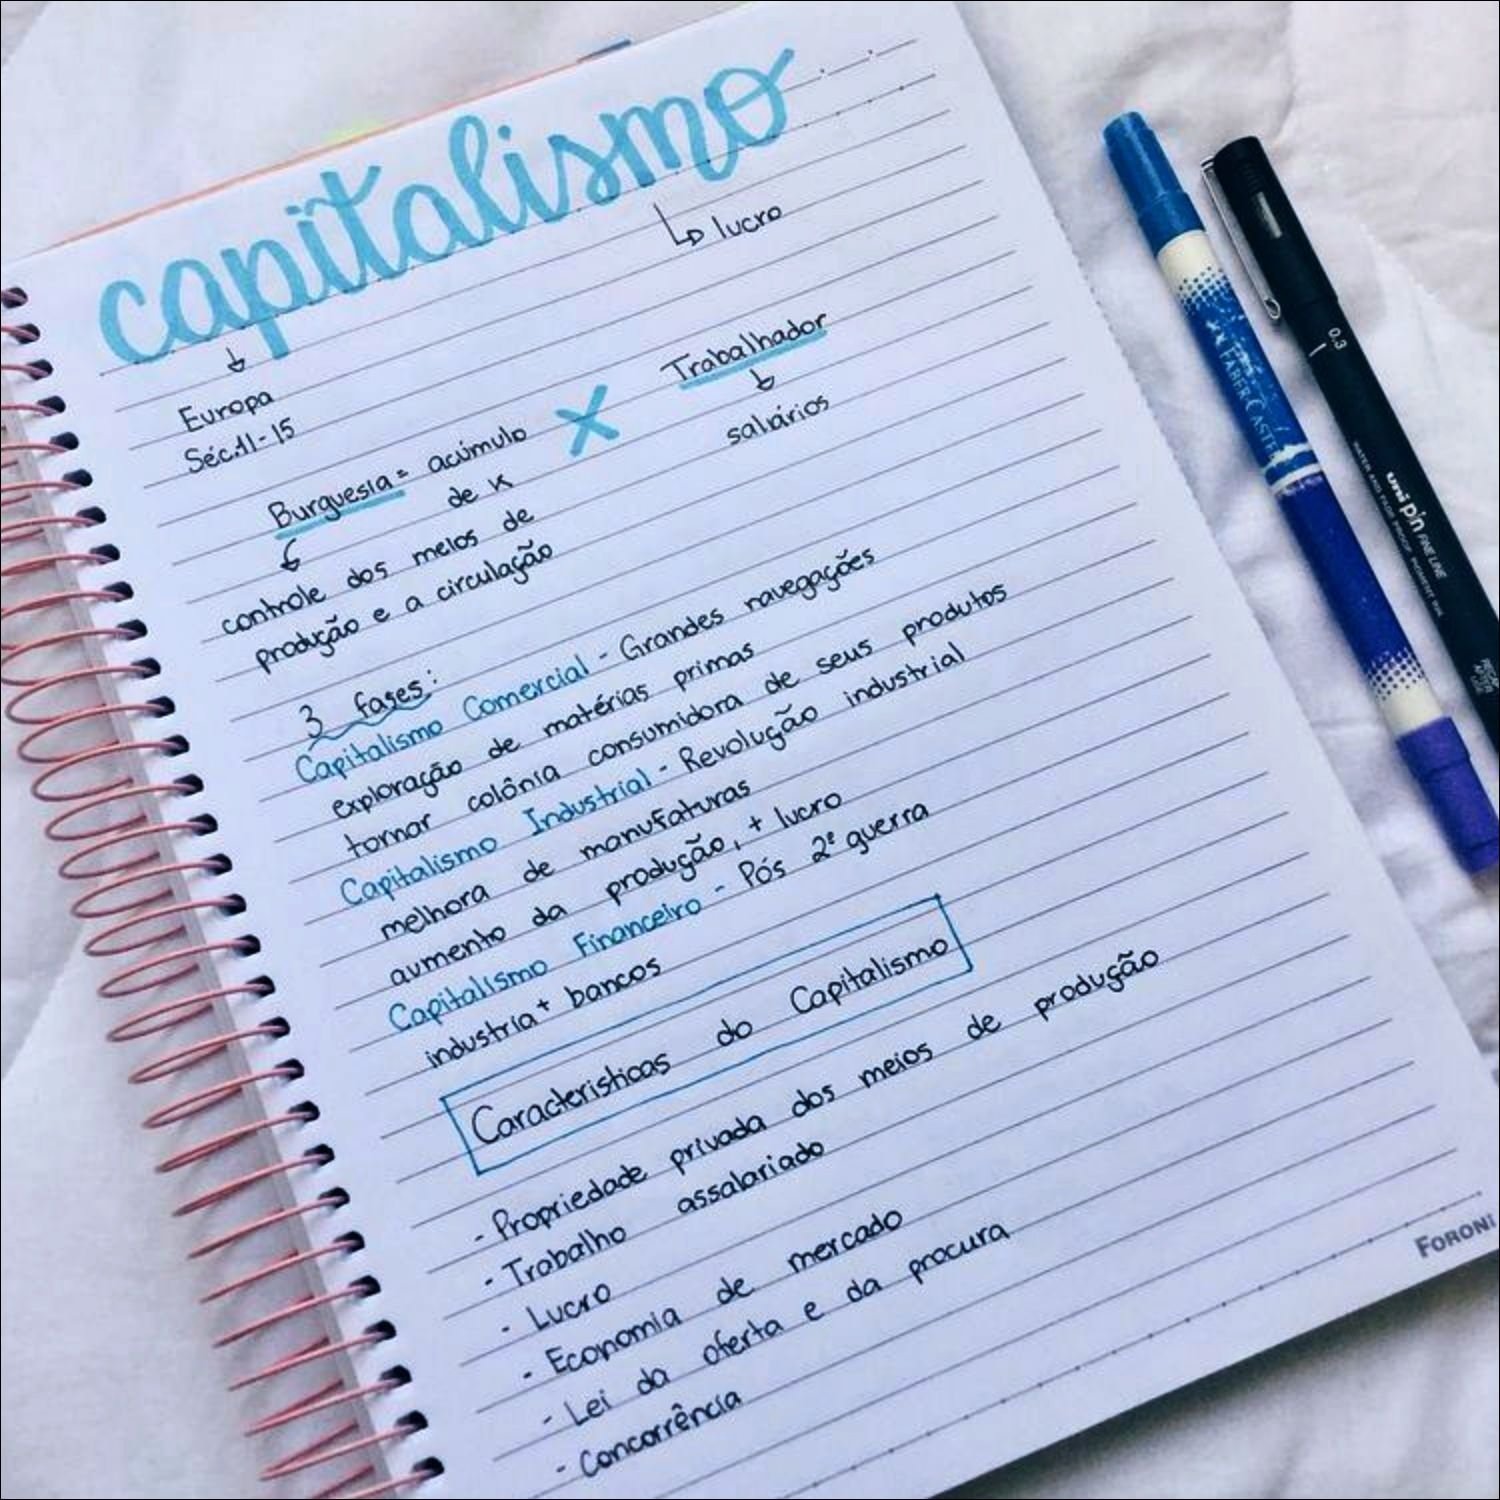 capitalismo
↳ lucro
↓
Europa
Séc.11-15
Burguesia = acúmulo
de K
X
Trabalhador
↓
salários
controle dos meios de
produção e a circulação
3 fases:
Capitalismo Comercial - Grandes navegações
exploração de matérias primas
tornar colônia consumidora de seus produtos
Capitalismo Industrial - Revolução industrial
melhora de manufaturas
aumento da produção, + lucro
Capitalismo Financeiro - Pós 2ª guerra
industria + bancos
Caracteristicas do Capitalismo
- Propriedade privada dos meios de produção
- Trabalho assalariado
- Lucro
- Economia de mercado
- Lei da oferta e da procura
- Concorrência
FORONI
FABER CASTELL
0.3
uni pin FINE LINE
WATER AND FADE PROOF, PIGMENT INK